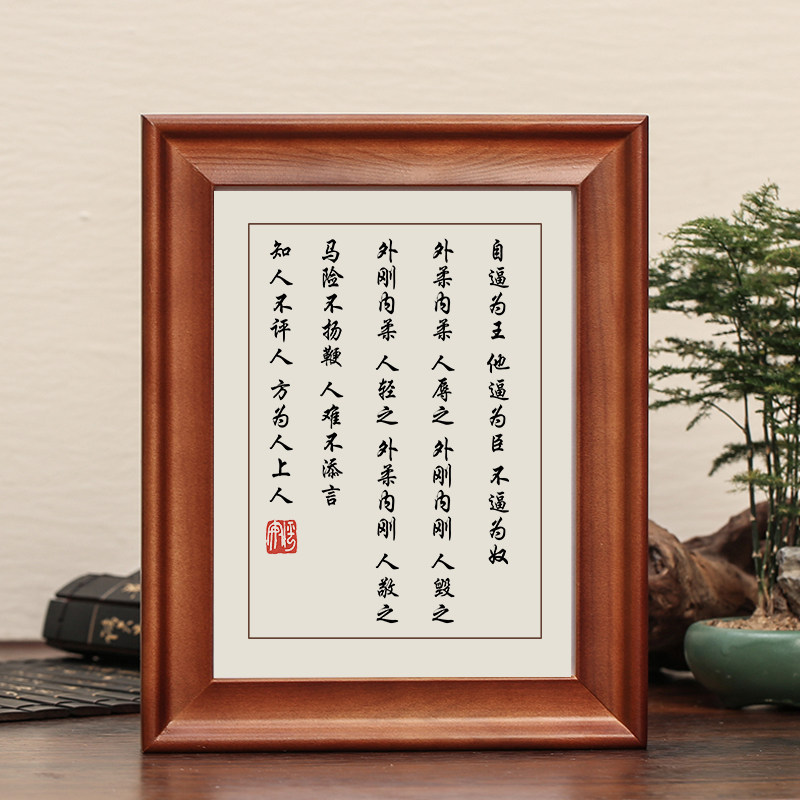 自逼为王 他逼为臣 不逼为奴
外柔内柔 人辱之 外刚内刚 人毁之
外刚内柔 人轻之 外柔内刚 人敬之
马险不扬鞭 人难不添言
知人不评人 方为人上人